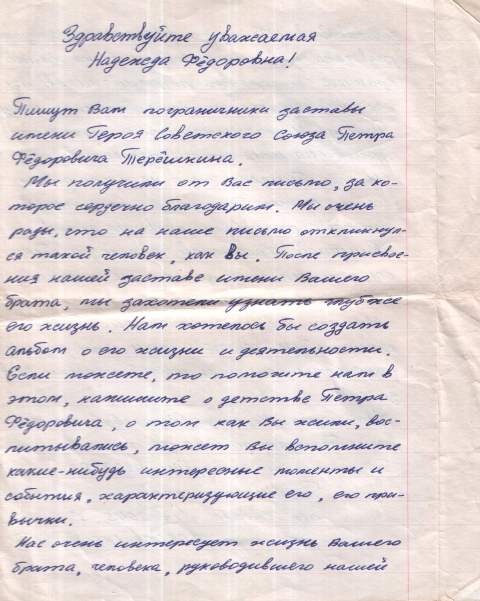 Здравствуйте уважаемая
Надежда Фёдоровна!
Пишут Вам пограничники заставы
имени Героя Советского Союза Петра
Фёдоровича Терёшкина.
Мы получили от Вас письмо, за ко-
торое сердечно благодарим. Мы очень
рады, что на наше письмо откликнул-
ся такой человек, как Вы. После присвое-
ния нашей заставе имени Вашего
брата, мы захотели узнать глубже
его жизнь. Нам хотелось бы создать
альбом о его жизни и деятельности.
Если можете, то помогите нам в
этом, напишите о детстве Петра
Фёдоровича, о том как Вы жили, вос-
питывались, может Вы вспомните
какие-нибудь интересные моменты и
события, характеризующие его, его при-
вычки.
Нас очень интересует жизнь Вашего
брата, человека, руководившего нашей